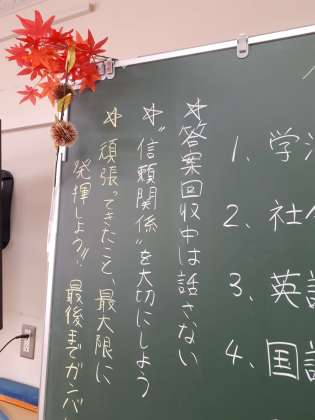 ☆答案回収中は話さない
☆“信頼関係”を大切にしよう
☆頑張ってきたこと、最大限に
発揮しよう!! 最後までガンバ
1. 学活
2. 社会
3. 英語
4. 国語